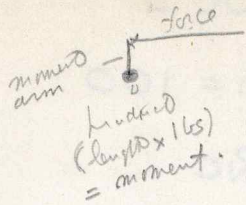 force
moment
arm
(length x lbs)
= moment.